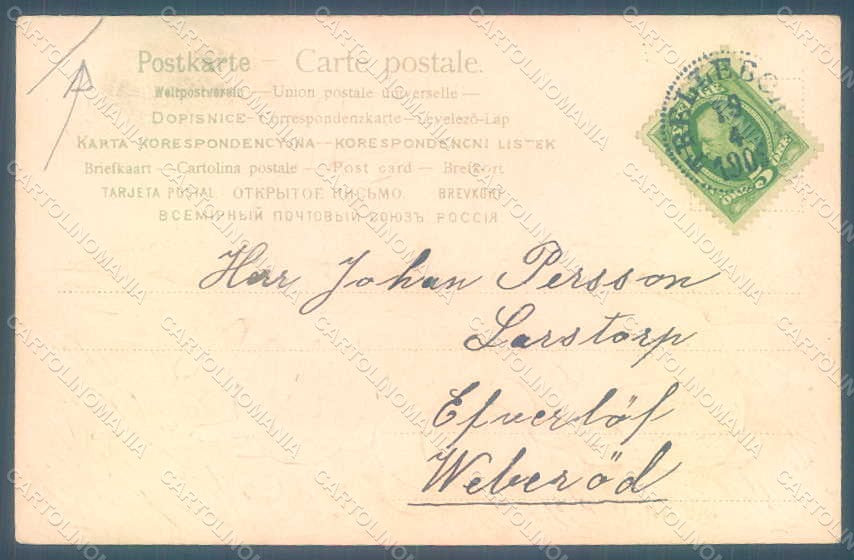 Postkarte – Carte postale.
Weltpostverein – Union postale universelle –
DOPISNICE – Correspondenzkarte – Levelező-Láp
KARTA KORESPONDENCYJNA – KORESPONDENCNÍ LISTEK
Briefkaart – Cartolina postale – Post card – Brefkort
TARJETA POSTAL ОТКРЫТОЕ ПИСЬМО. BREVKORT
ВСЕМІРНЫЙ ПОЧТОВЫЙ СОЮЗЪ РОССІЯ
TRELLEBOR
19
4
190
5
Herr Johan Persson
Larstorp
Efverlöf
Weberöd
CARTOLINOMANIA